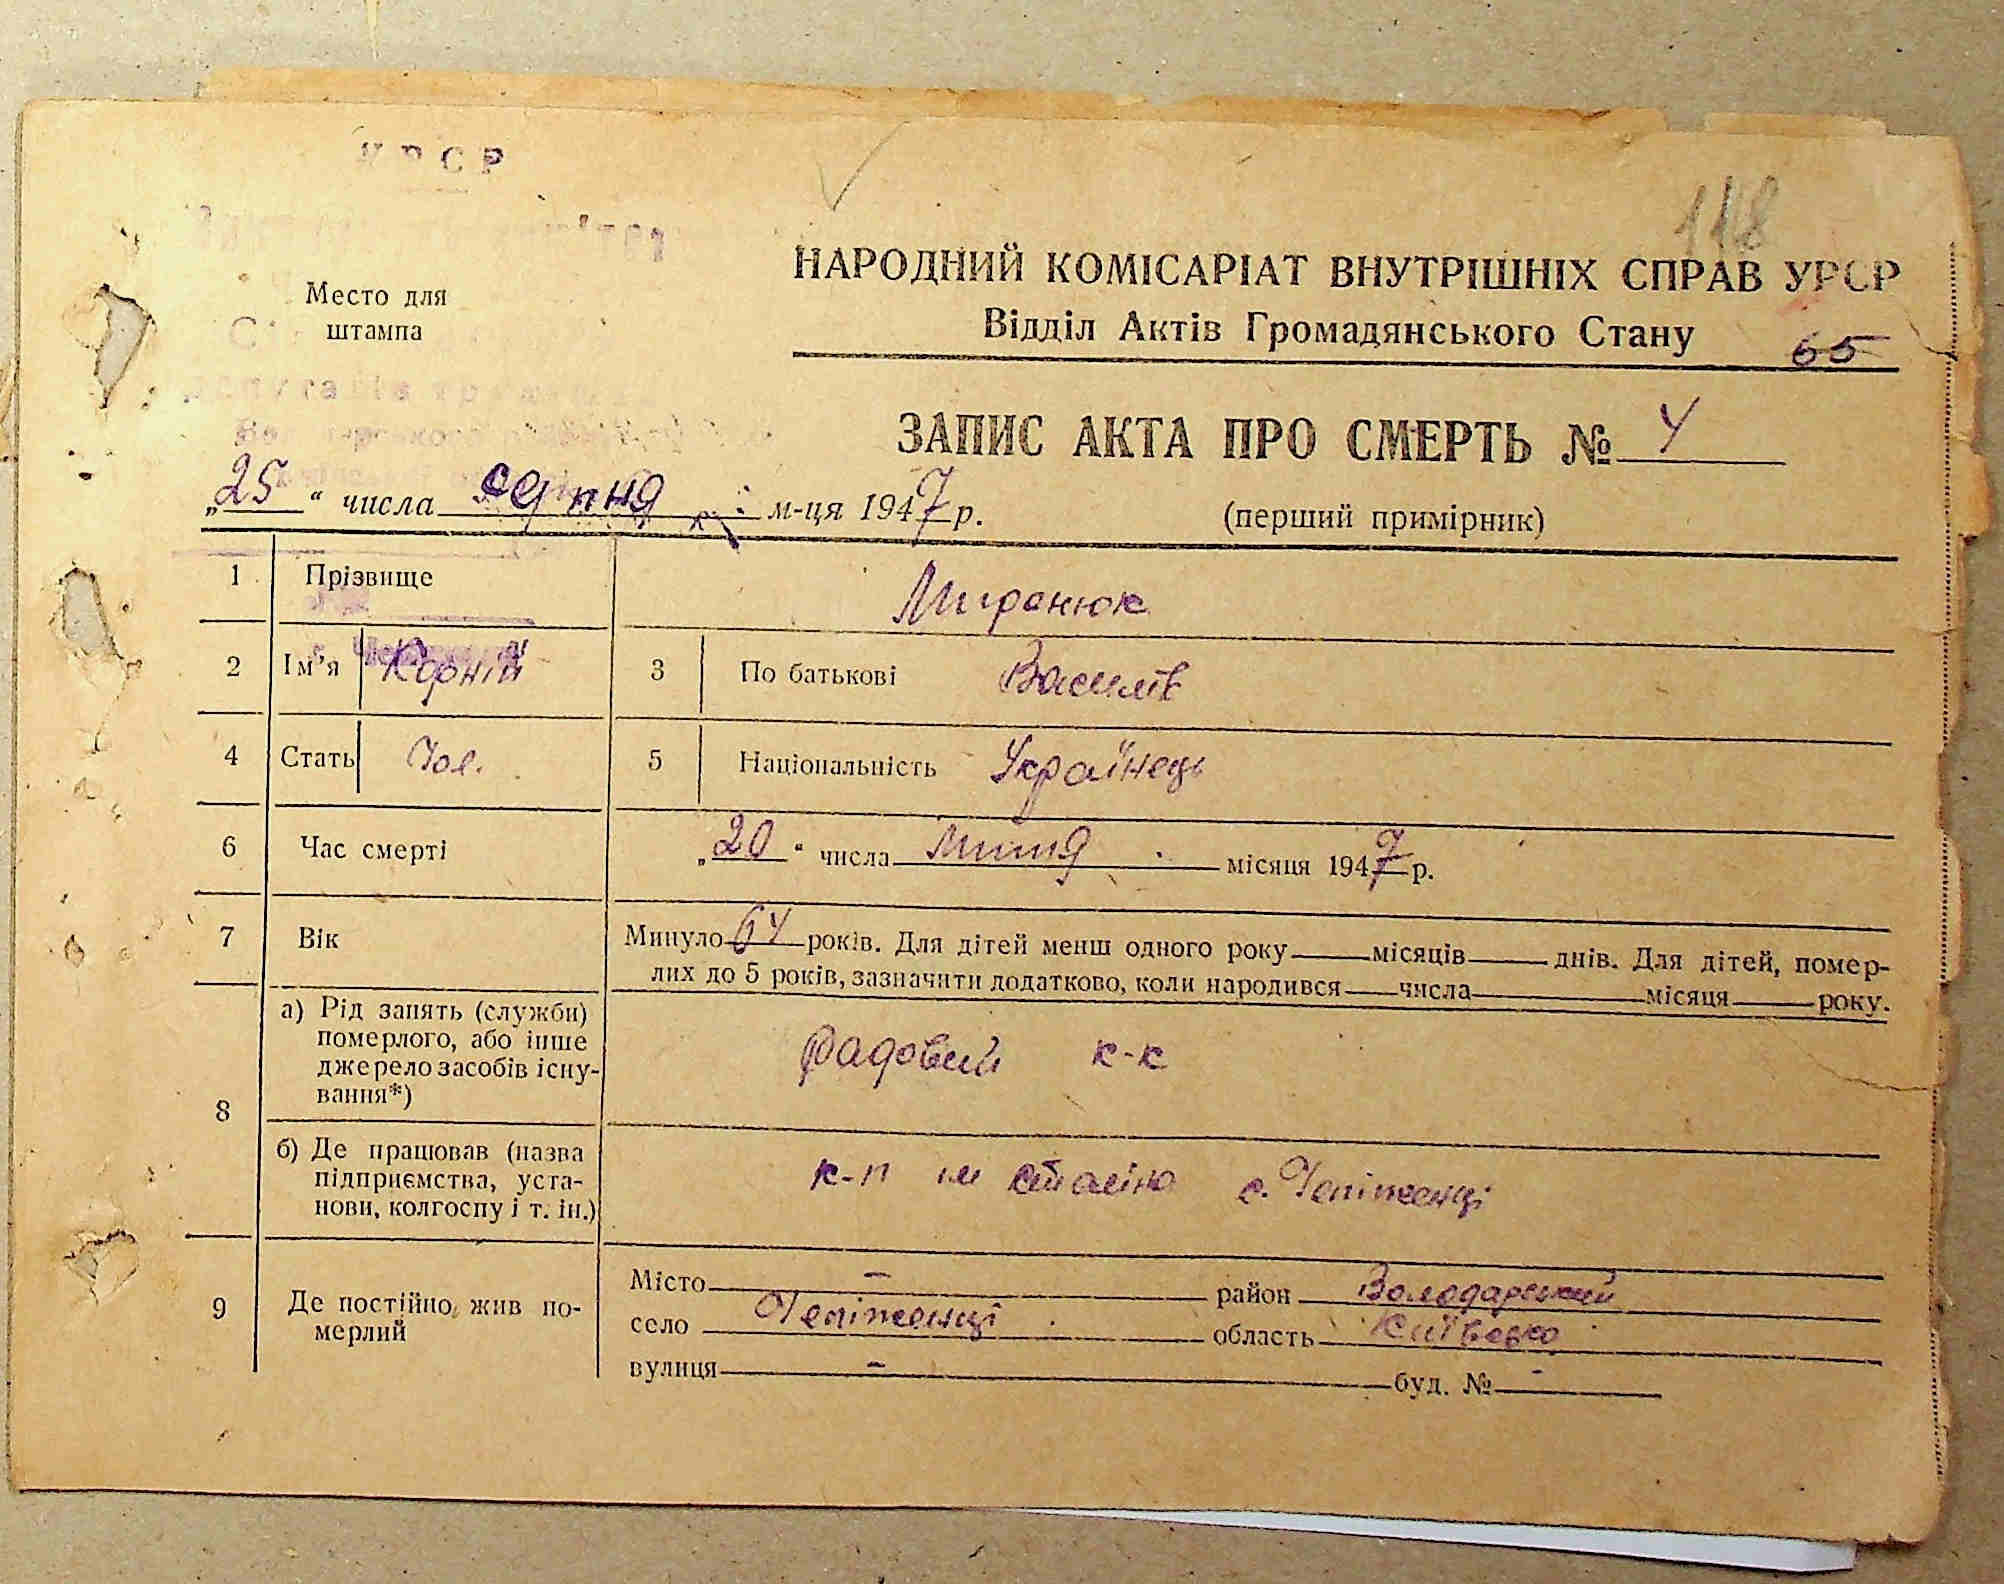 УРСР
118
Место для
штампа
НАРОДНИЙ КОМІСАРІАТ ВНУТРІШНІХ СПРАВ УРСР
Відділ Актів Громадянського Стану
65
ЗАПИС АКТА ПРО СМЕРТЬ № 4
„25“ числа серпня м-ця 1947 р.
(перший примірник)
1 Прізвище Миранюк
2 Ім’я Корній 3 По батькові Василів
4 Стать Чол. 5 Національність Українець
6 Час смерті „20“ числа липня місяця 1947 р.
7 Вік Минуло 64 років. Для дітей менш одного року місяців днів. Для дітей, помер-
лих до 5 років, зазначити додатково, коли народився числа місяця року.
8 а) Рід занять (служби)
померлого, або інше
джерело засобів існу-
вання*)
Радовий к-к
б) Де працював (назва
підприємства, уста-
нови, колгоспу і т. ін.)
к-п ім сталіна с. Чепіженці
9 Де постійно жив по-
мерлий
Місто – район Володарський
село Чепіженці область Київська
вулиця – буд. № –